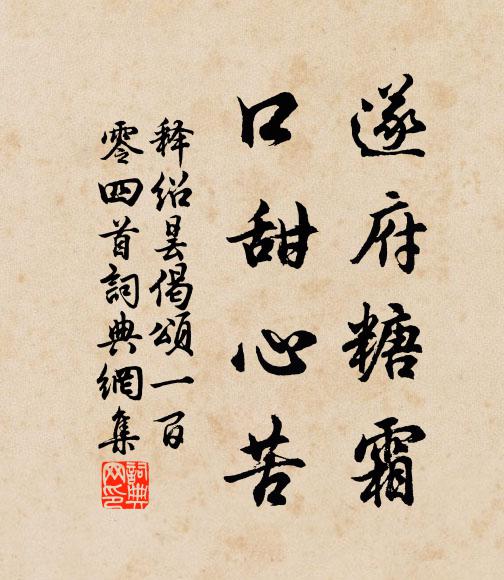 遂府糖霜
口甜心苦
释绍昙偈頌一百
零四首詞典網集
詞典网印